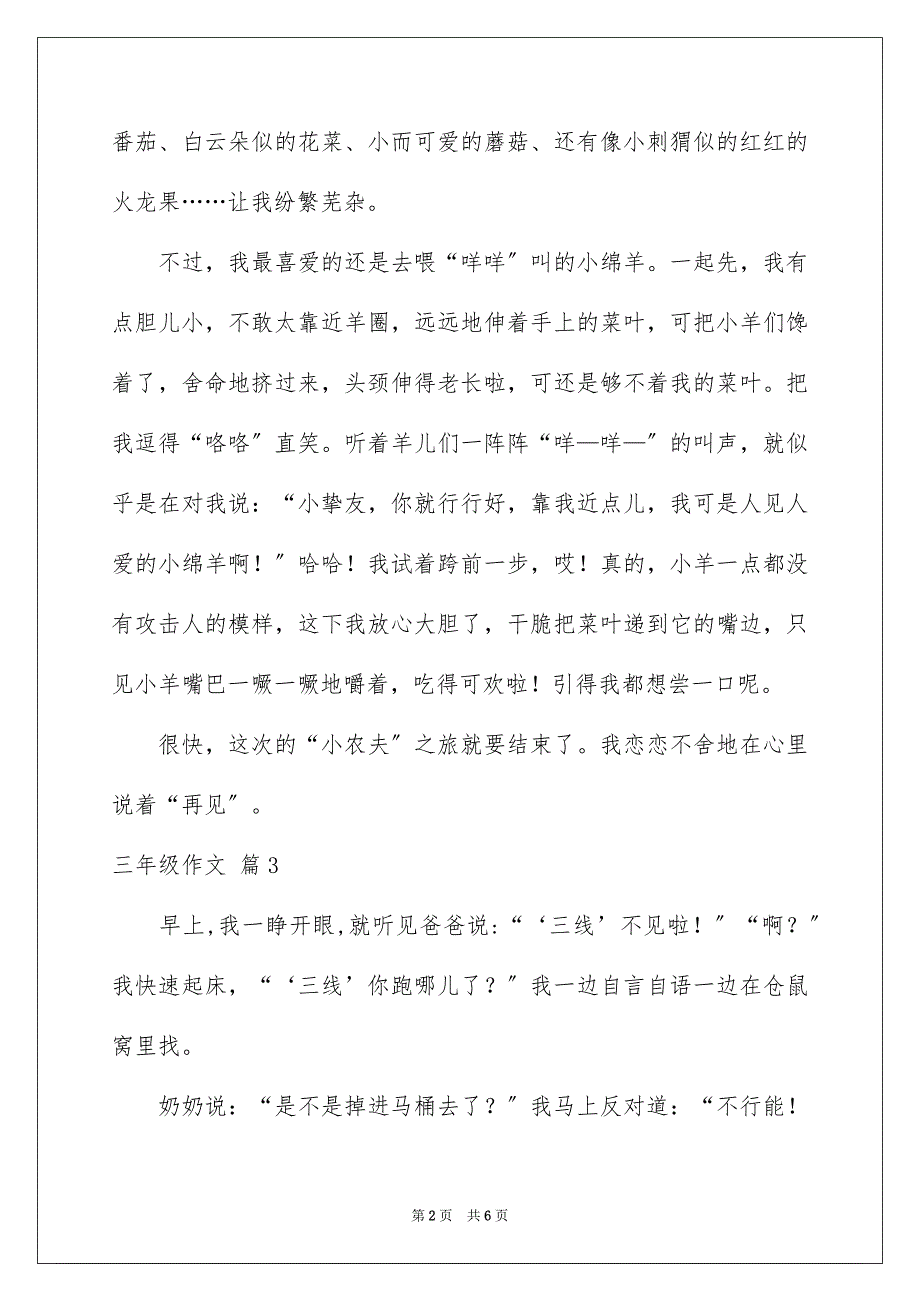 番茄、白云朵似的花菜、小而可爱的蘑菇、还有像小刺猬似的红红的
火龙果……让我纷繁芜杂。
不过，我最喜爱的还是去喂“咩咩〞叫的小绵羊。一起先，我有
点胆儿小，不敢太靠近羊圈，远远地伸着手上的菜叶，可把小羊们馋
着了，舍命地挤过来，头颈伸得老长啦，可还是够不着我的菜叶。把
我逗得“咯咯〞直笑。听着羊儿们一阵阵“咩—咩—〞的叫声，就似
乎是在对我说：“小挚友，你就行行好，靠我近点儿，我可是人见人
爱的小绵羊啊！〞哈哈！我试着跨前一步，哎！真的，小羊一点都没
有攻击人的模样，这下我放心大胆了，干脆把菜叶递到它的嘴边，只
见小羊嘴巴一噘一噘地嚼着，吃得可欢啦！引得我都想尝一口呢。
很快，这次的“小农夫〞之旅就要结束了。我恋恋不舍地在心里
说着“再见〞。
三年级作文 篇3
早上,我一睁开眼,就听见爸爸说:“‘三线’不见啦！〞“啊？〞
我快速起床，“‘三线’你跑哪儿了？〞我一边自言自语一边在仓鼠
窝里找。
奶奶说：“是不是掉进马桶去了？〞我马上反对道：“不行能！
第 2 页 共 6 页